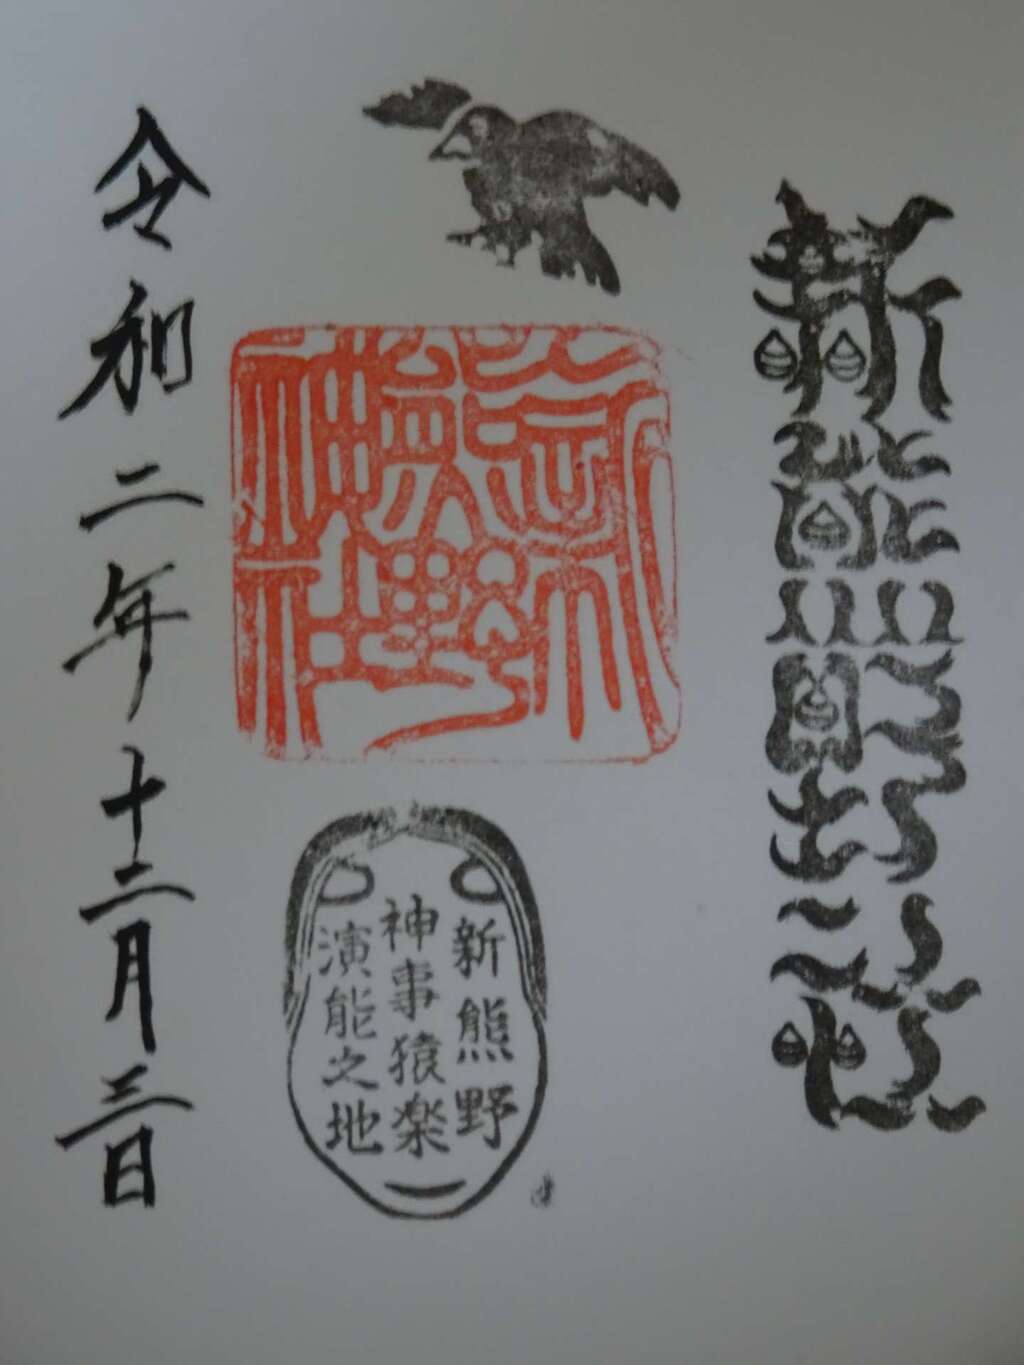 新熊野
新熊野神社
新熊野
神事猿楽
演能之地
令和二年十二月三日